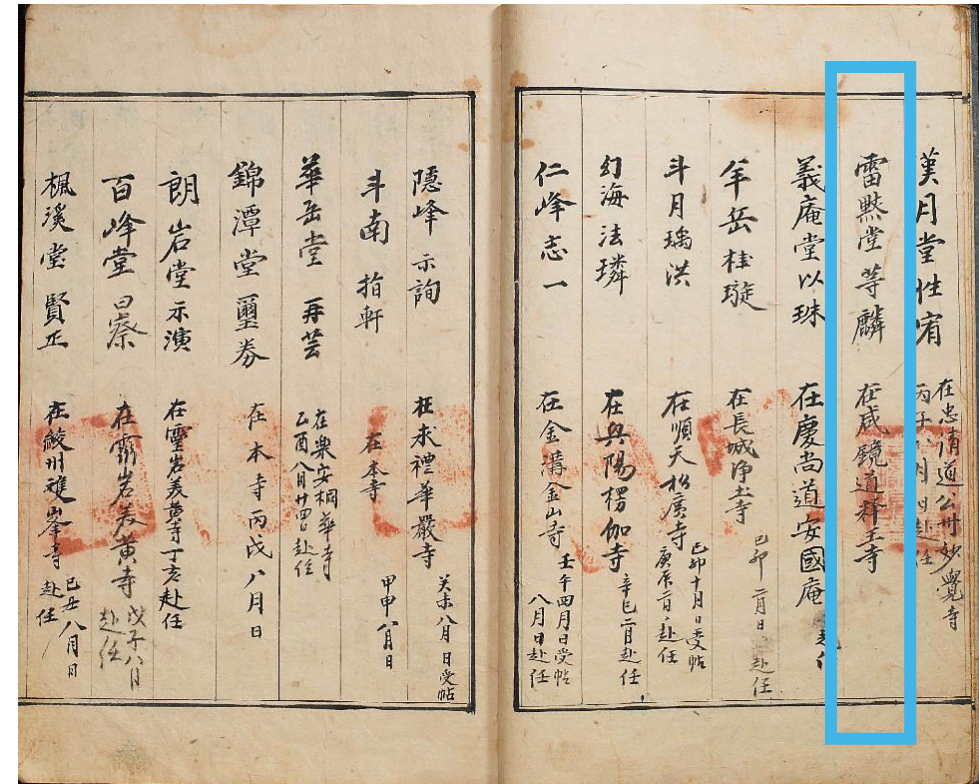 漢月堂性宥 在忠淸道公州妙覺寺
丙子 月 日赴任
雷黙堂等麟 在咸鏡道釋王寺
義庵堂以珠 在慶尙道安國庵 赴任
羊岳桂璇 在長城浄土寺 己卯二月日赴任
斗月瑀洪 在順天松廣寺 己卯十月日受帖
庚辰二月日赴任
幻海法璘 在興陽楞伽寺 辛巳二月赴任
仁峰志一 在金溝金山寺 壬午四月日受帖
八月日赴任
隱峰示詢 在求禮華嚴寺 癸未八月日受帖
甲申八月日
斗南指軒 在本寺
華岳堂再芸 在樂安桐華寺
乙酉八月廿四日赴任
錦潭堂璽券 在本寺丙戌八月日
朗岩堂示演 在靈岩美黄寺丁亥赴任
百峰堂 在靈岩美黄寺 戊子八月
赴任
楓溪堂賢正 在綾州雙峯寺 己丑八月日
赴任